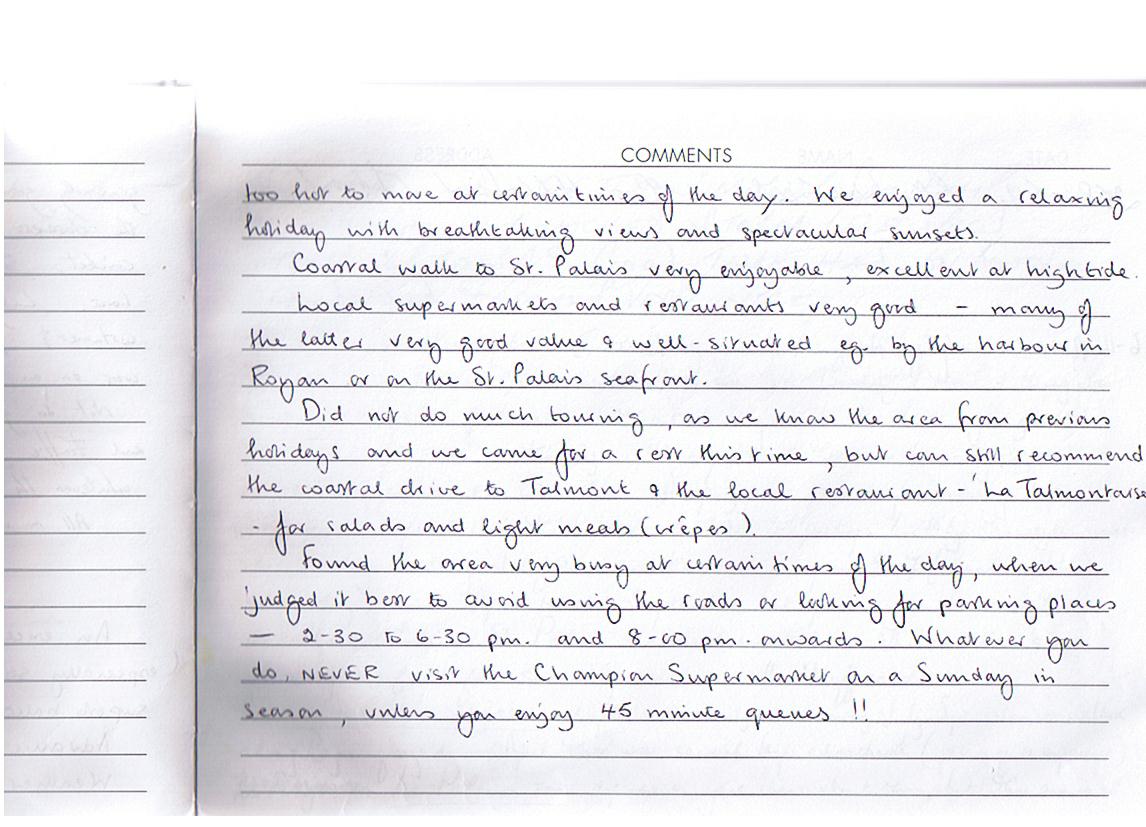 COMMENTS
too hot to move at certain times of the day. We enjoyed a relaxing
holiday with breathtaking views and spectacular sunsets.
Coastal walk to St. Palais very enjoyable, excellent at high tide.
Local supermarkets and restaurants very good - many of
the latter very good value & well-situated eg. by the harbour in
Royan or on the St. Palais seafront.
Did not do much touring, as we know the area from previous
holidays and we came for a rest this time, but can still recommend
the coastal drive to Talmont & the local restaurant - 'La Talmontaise
- for salads and light meals (crêpes).
Found the area very busy at certain times of the day, when we
judged it best to avoid using the roads or looking for parking places
— 2-30 to 6-30 pm. and 8-00 pm. onwards. Whatever you
do, NEVER visit the Champion Supermarket on a Sunday in
season, unless you enjoy 45 minute queues !!